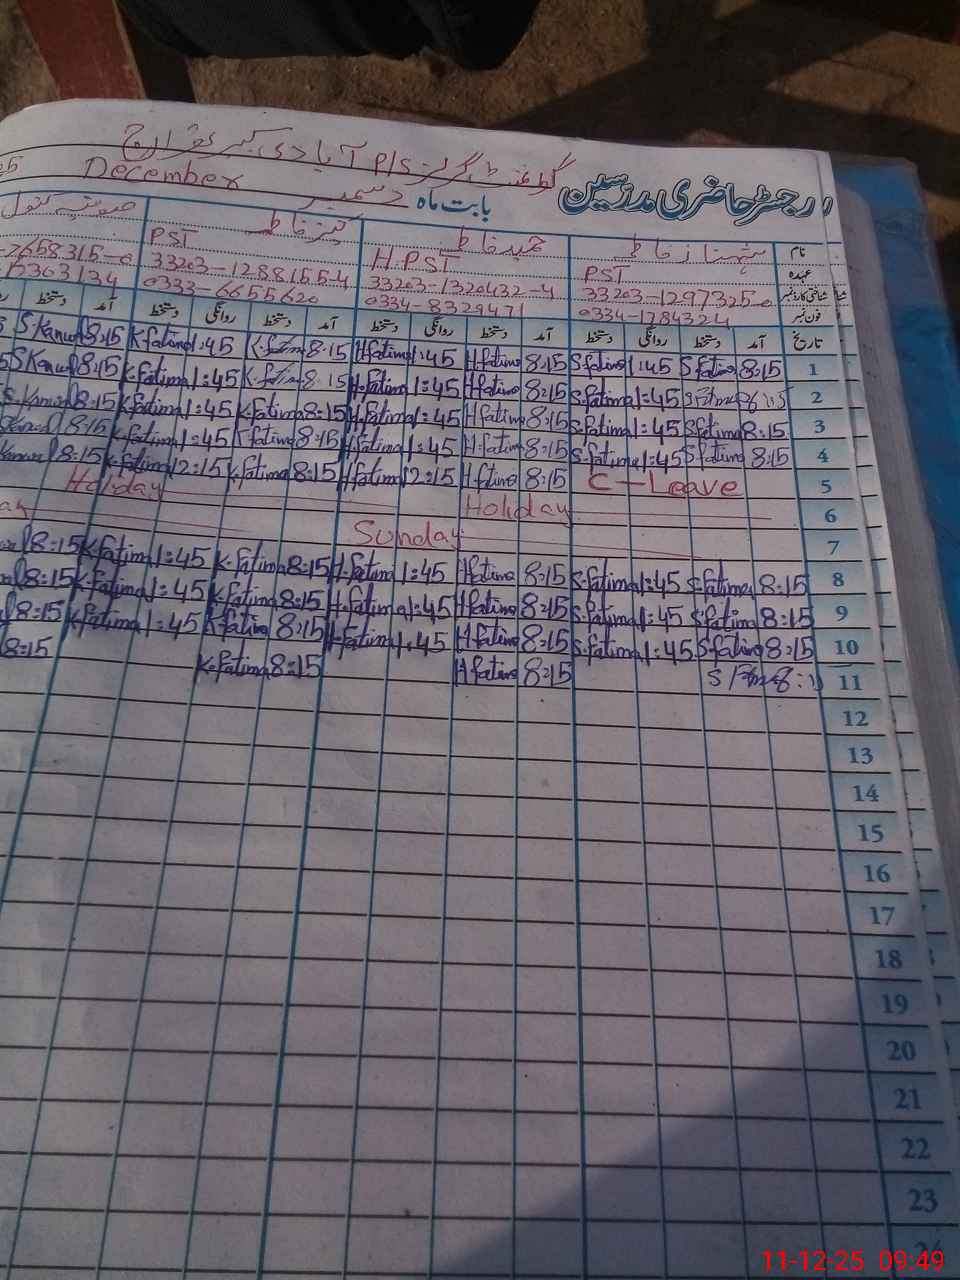 گورنمنٹ گرلز P/S آبادی
رجسٹر حاضری مدرسین
بابت ماہ دسمبر December
نام شہناز فاطمہ حمید فاطمہ کنیز فاطمہ
عہدہ PST H.PST PST
شناختی کارڈ نمبر 33203-1297325-0 33203-1320432-4 33203-1288165-4 -2658315-0
فون نمبر 0334-1784324 0334-8329471 0333-6655620 5363134
تاریخ آمد دستخط روانگی دستخط آمد دستخط روانگی دستخط آمد دستخط روانگی دستخط آمد دستخط
1 8:15 S fatima 1:45 S fatima 8:15 H fatima 1:45 H fatima 8:15 K. fatima 1:45 K fatima 8:15 S Kanwal
2 8:15 S Fatima 1:45 S.fatima 8:15 H fatima 1:45 H.fatima 8:15 K. fatima 1:45 K.fatima 8:15 S Kanwal
3 8:15 S fatima 1:45 S.fatima 8:15 H fatima 1:45 H.fatima 8:15 K.fatima 1:45 K.fatima 8:15 S.Kanwal
4 8:15 S fatima 1:45 S.fatima 8:15 H fatima 1:45 H fatima 8:15 K fatima 1:45 K.fatima 8:15 Kanwal
5 C-Leave 8:15 H.fatima 12:15 H fatima 8:15 K.fatima 12:15 K.fatima 8:15 Kanwal
6 Holiday Holiday
7 Sunday
8 8:15 S.fatima 1:45 S.fatima 8:15 H fatima 1:45 H.fatima 8:15 K.fatima 1:45 K.fatima 8:15
9 8:15 S fatima 1:45 S.fatima 8:15 H fatima 1:45 H.fatima 8:15 K.fatima 1:45 K.fatima 8:15
10 8:15 S fatima 1:45 S.fatima 8:15 H fatima 1:45 H fatima 8:15 K fatima 1:45 K.fatima 8:15
11 8:15 S Fatima 8:15 H fatima 8:15 K.fatima 8:15
12
13
14
15
16
17
18
19
20
21
22
23
24
11-12-25 09:49